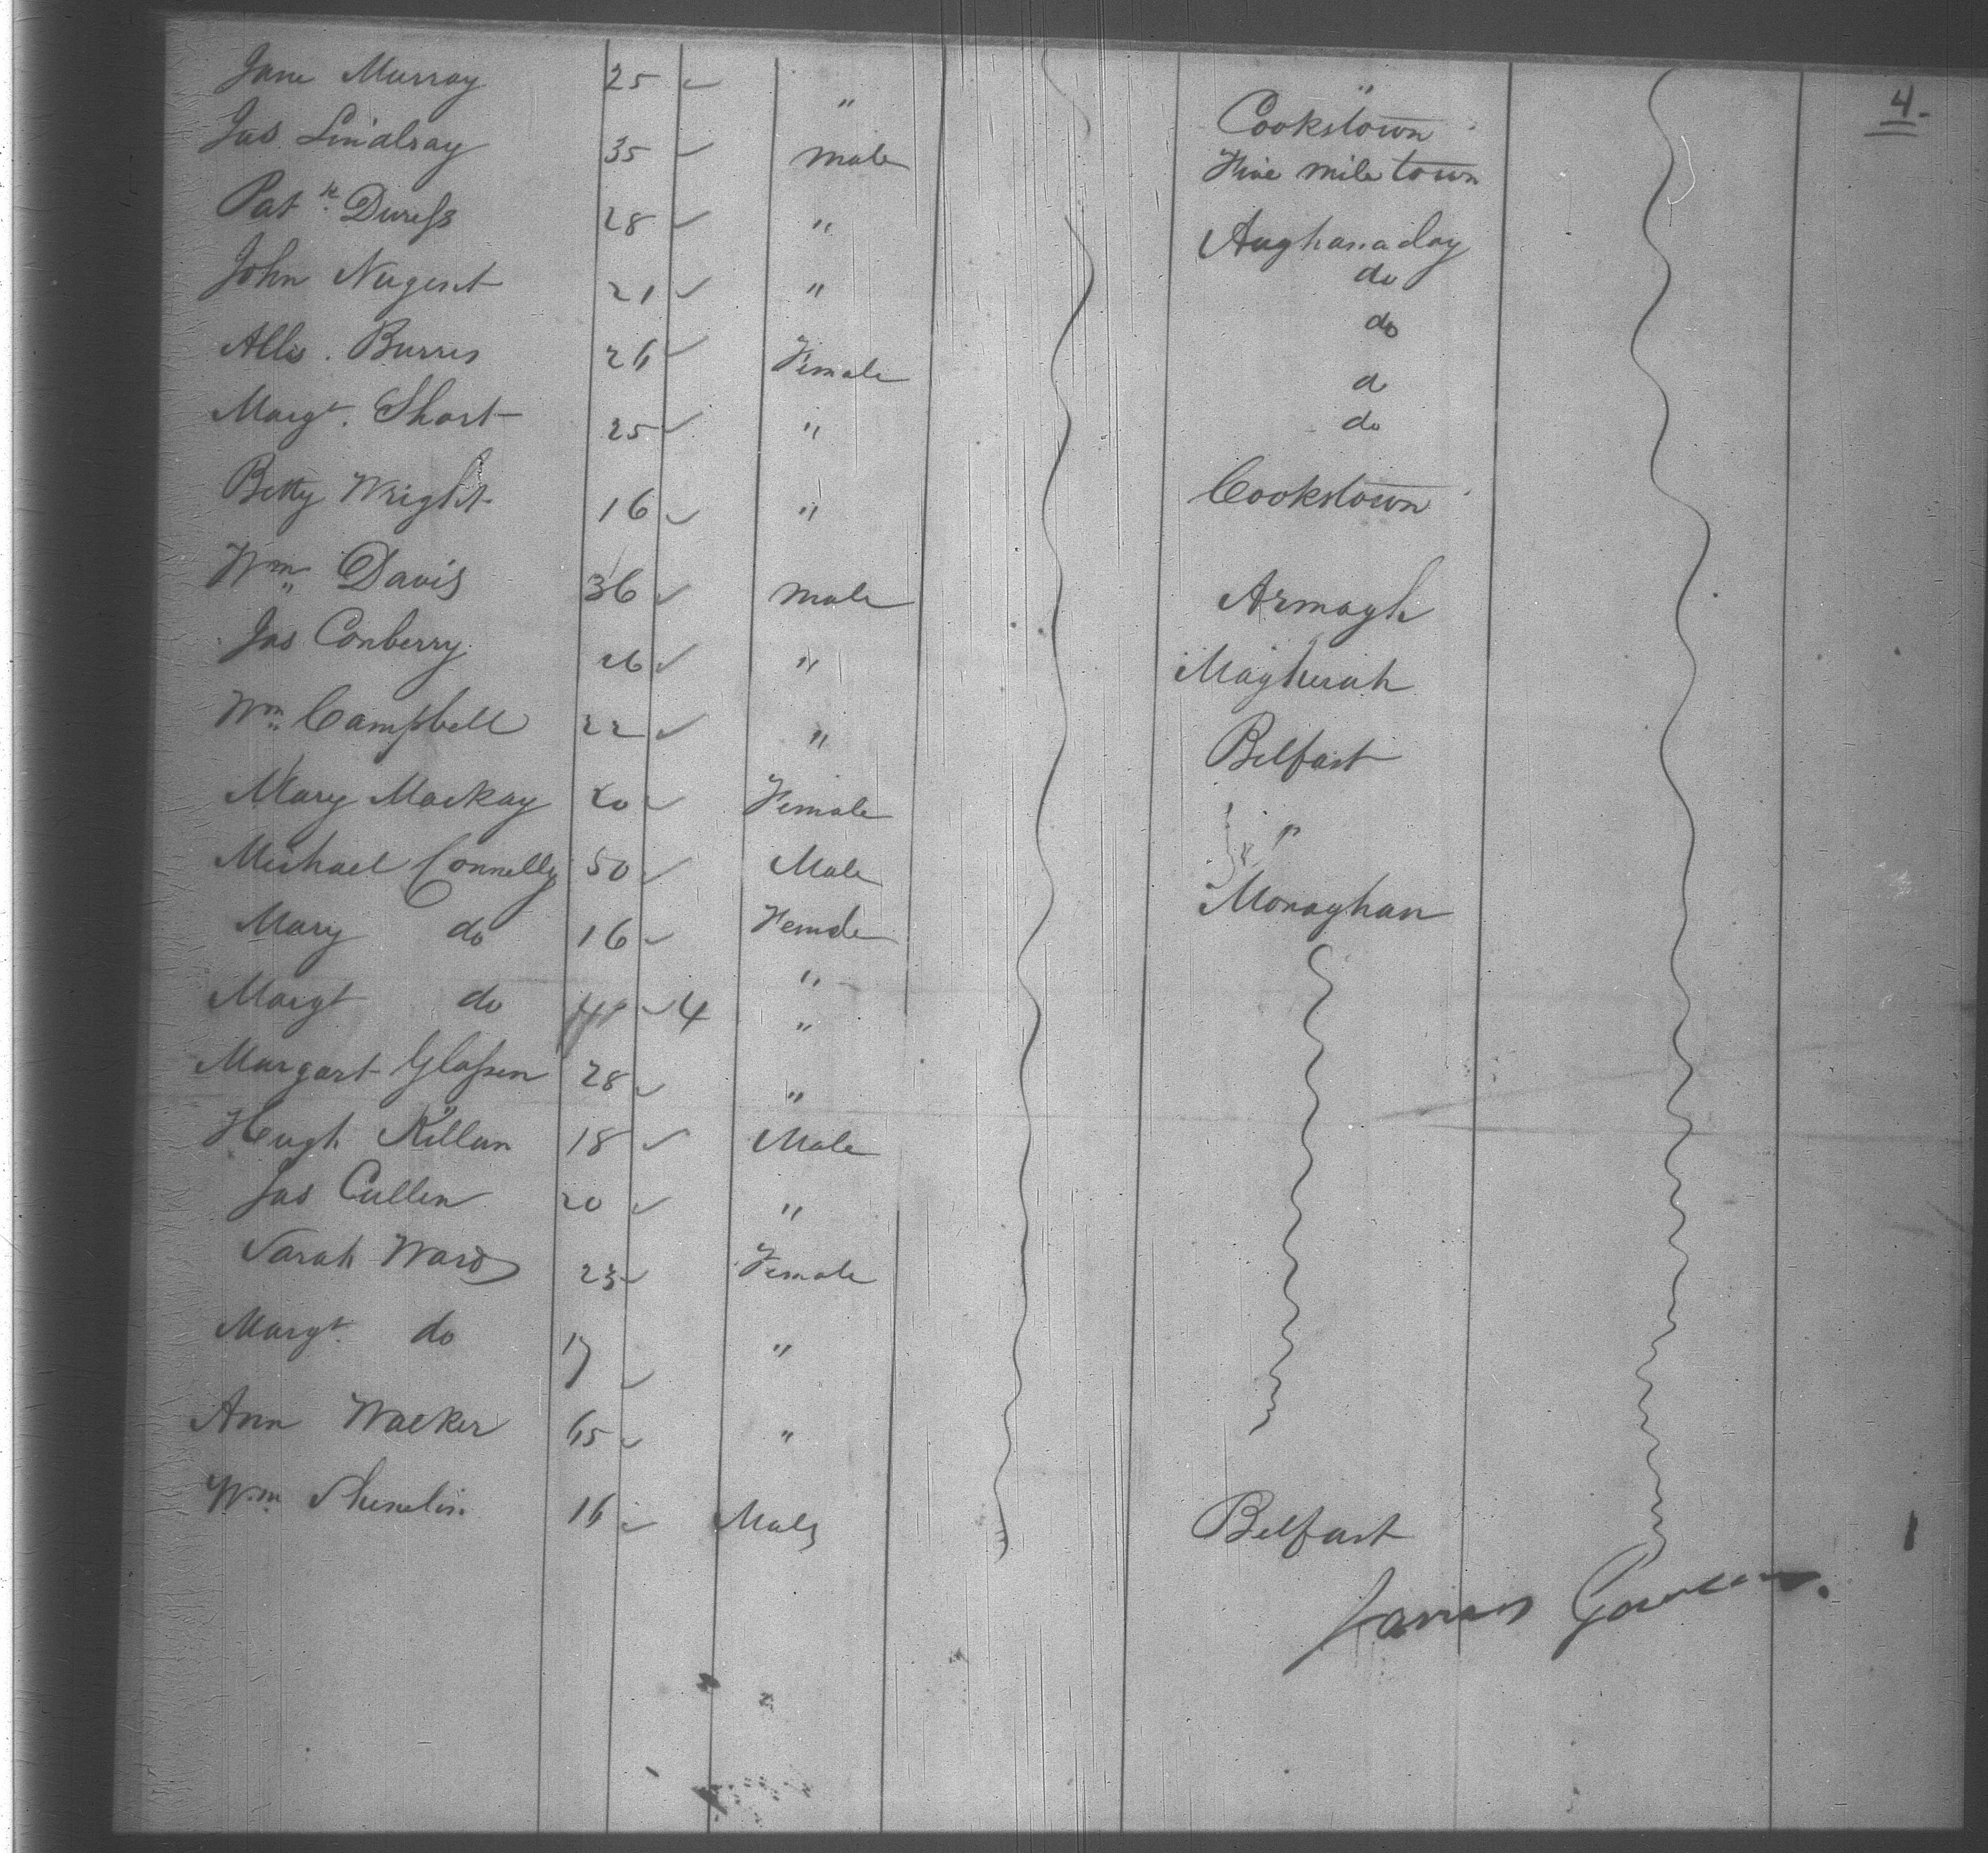 4.
Jane Murray 25 " "
Cookstown
Jas Lindsay 35 male Five mile town
Patk Duress 28 " Aughanaday
John Nugent 21 " do
do
Allis. Burris 26 Female d
Margt. Short 25 " do
Betty Wright 16 " Cookstown
Wm Davis 36 male Armagh
Jas Conberry 26 " Magherah
Wm Campbell 22 " Belfast
Mary Mackay 20 Female "
Michael Connelly 50 Male Monaghan
Mary do 16 Female
Margt do 4 "
"
Margart Glassen 28 "
Hugh Killen 18 Male
Jas Cullen 20 "
Sarah Ward 23 Female
Margt. do 17 "
Ann Walker 65 "
Wm 16 Male Belfast
James